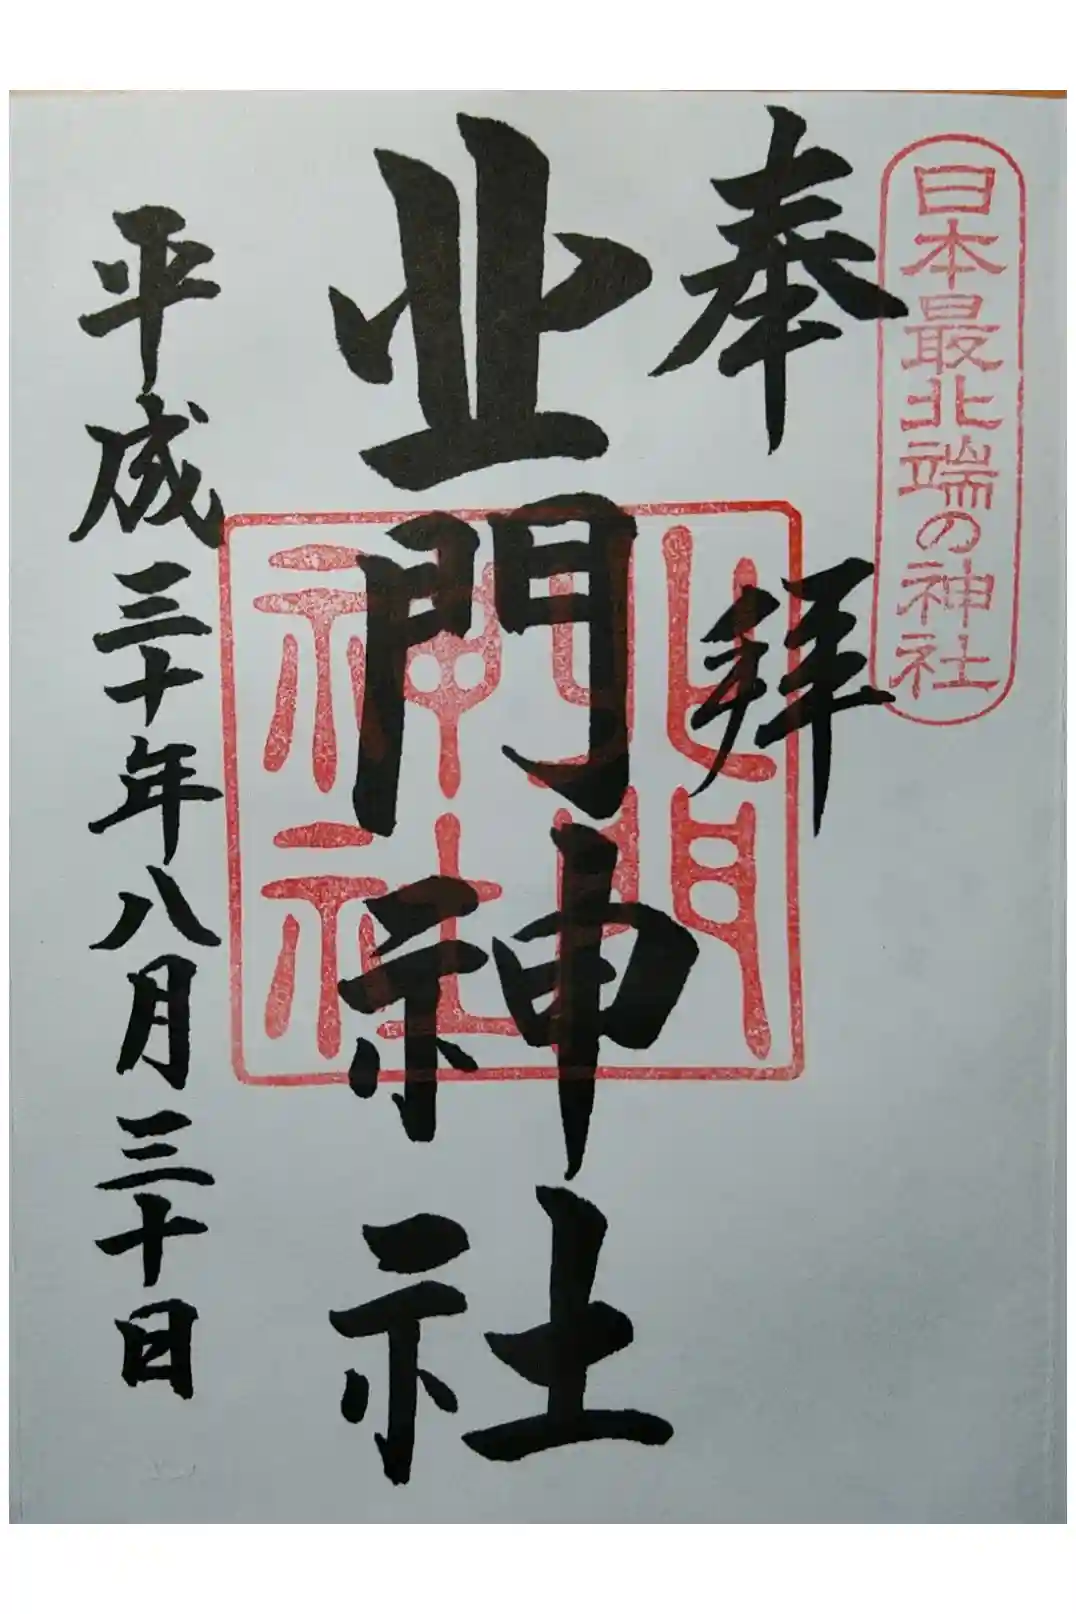 日本最北端の神社
奉拝
北門神社
北門
神社
平成三十年八月三十日